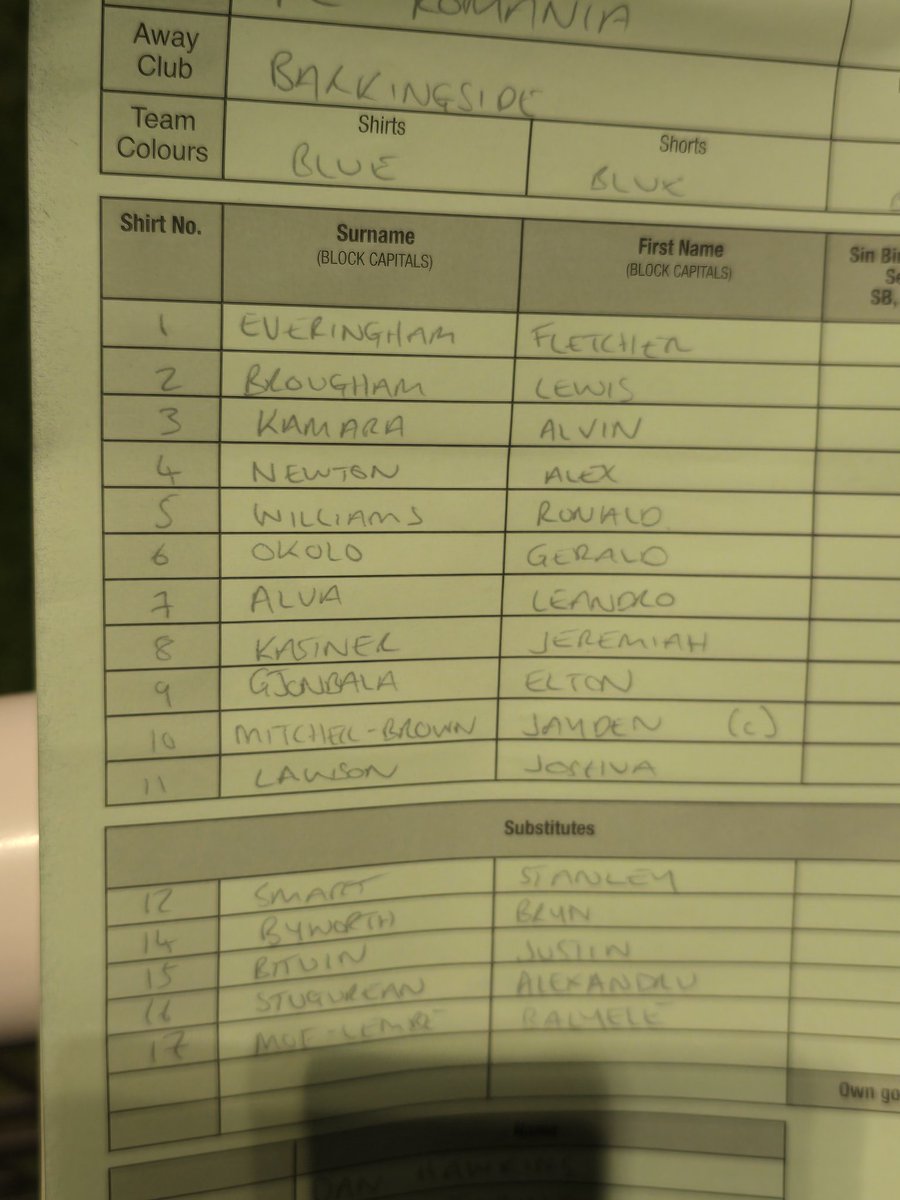 ROMANIA
Away Club BARKINGSIDE
Team Colours Shirts BLUE Shorts BLUE
Shirt No. Surname (BLOCK CAPITALS) First Name (BLOCK CAPITALS) Sin Bin SB,
1 EVERINGHAM FLETCHER
2 BROUGHAM LEWIS
3 KAMARA ALVIN
4 NEWTON ALEX
5 WILLIAMS RONALD
6 OKOLO GERALD
7 ALVA LEANDRO
8 KASINER JEREMIAH
9 GJONBALA ELTON
10 MITCHEL-BROWN JAYDEN (C)
11 LAWSON JOSHUA
Substitutes
12 SMART STANLEY
14 BYWORTH BRYN
15 BITUIN JUSTIN
16 STUGUREAN ALEXANDRU
17
Own
Name
DAN HAWKINS